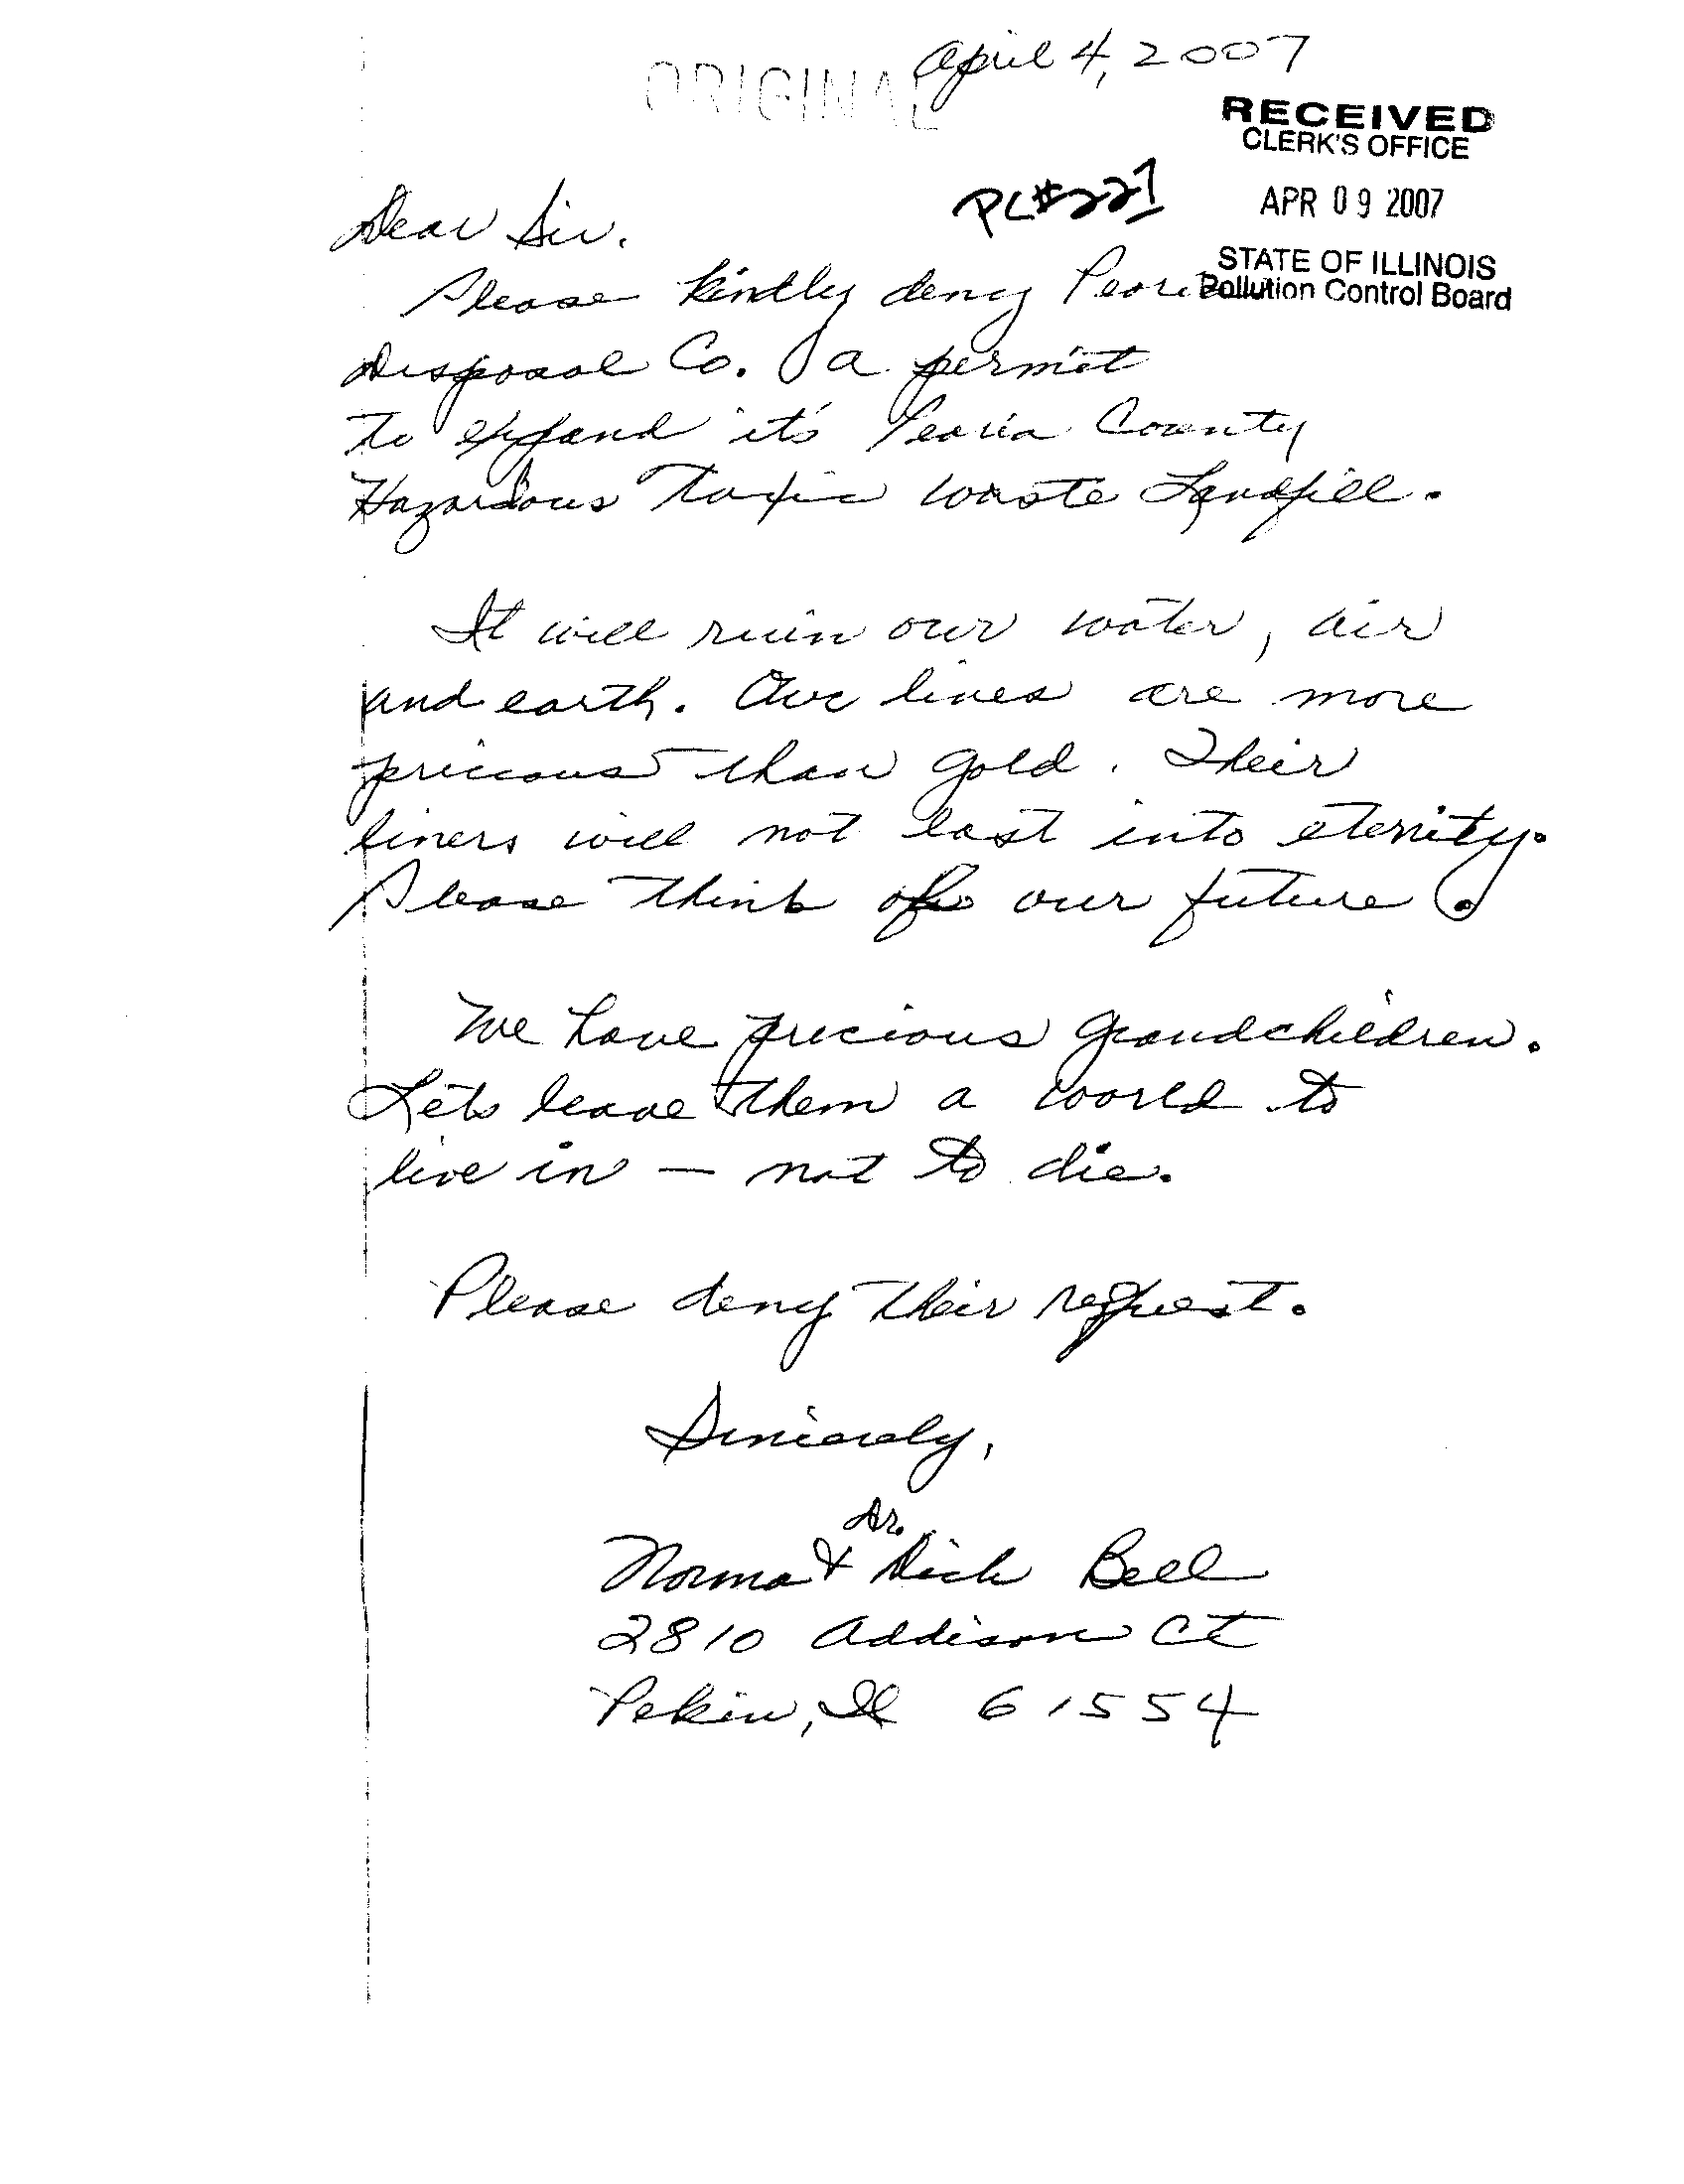 April 4, 2007
ORIGINAL
RECEIVED
CLERK'S OFFICE
PC#227
APR 09 2007
STATE OF ILLINOIS
Pollution Control Board
Dear Sir.
Please kindly deny Peoria
Disposal Co. a permit
to expand it's Peoria County
Hazardous Toxic waste Landfill.
It will ruin our water, air
and earth. Our lives are more
precious than gold. Their
liners will not last into eternity.
Please think of our future.
We have precious grandchildren.
Lets leave them a world to
live in — not to die.
Please deny their request.
Sincerely,
Dr.
Norma & Dick Bell
2810 Addison Ct
Pekin, Il 61554